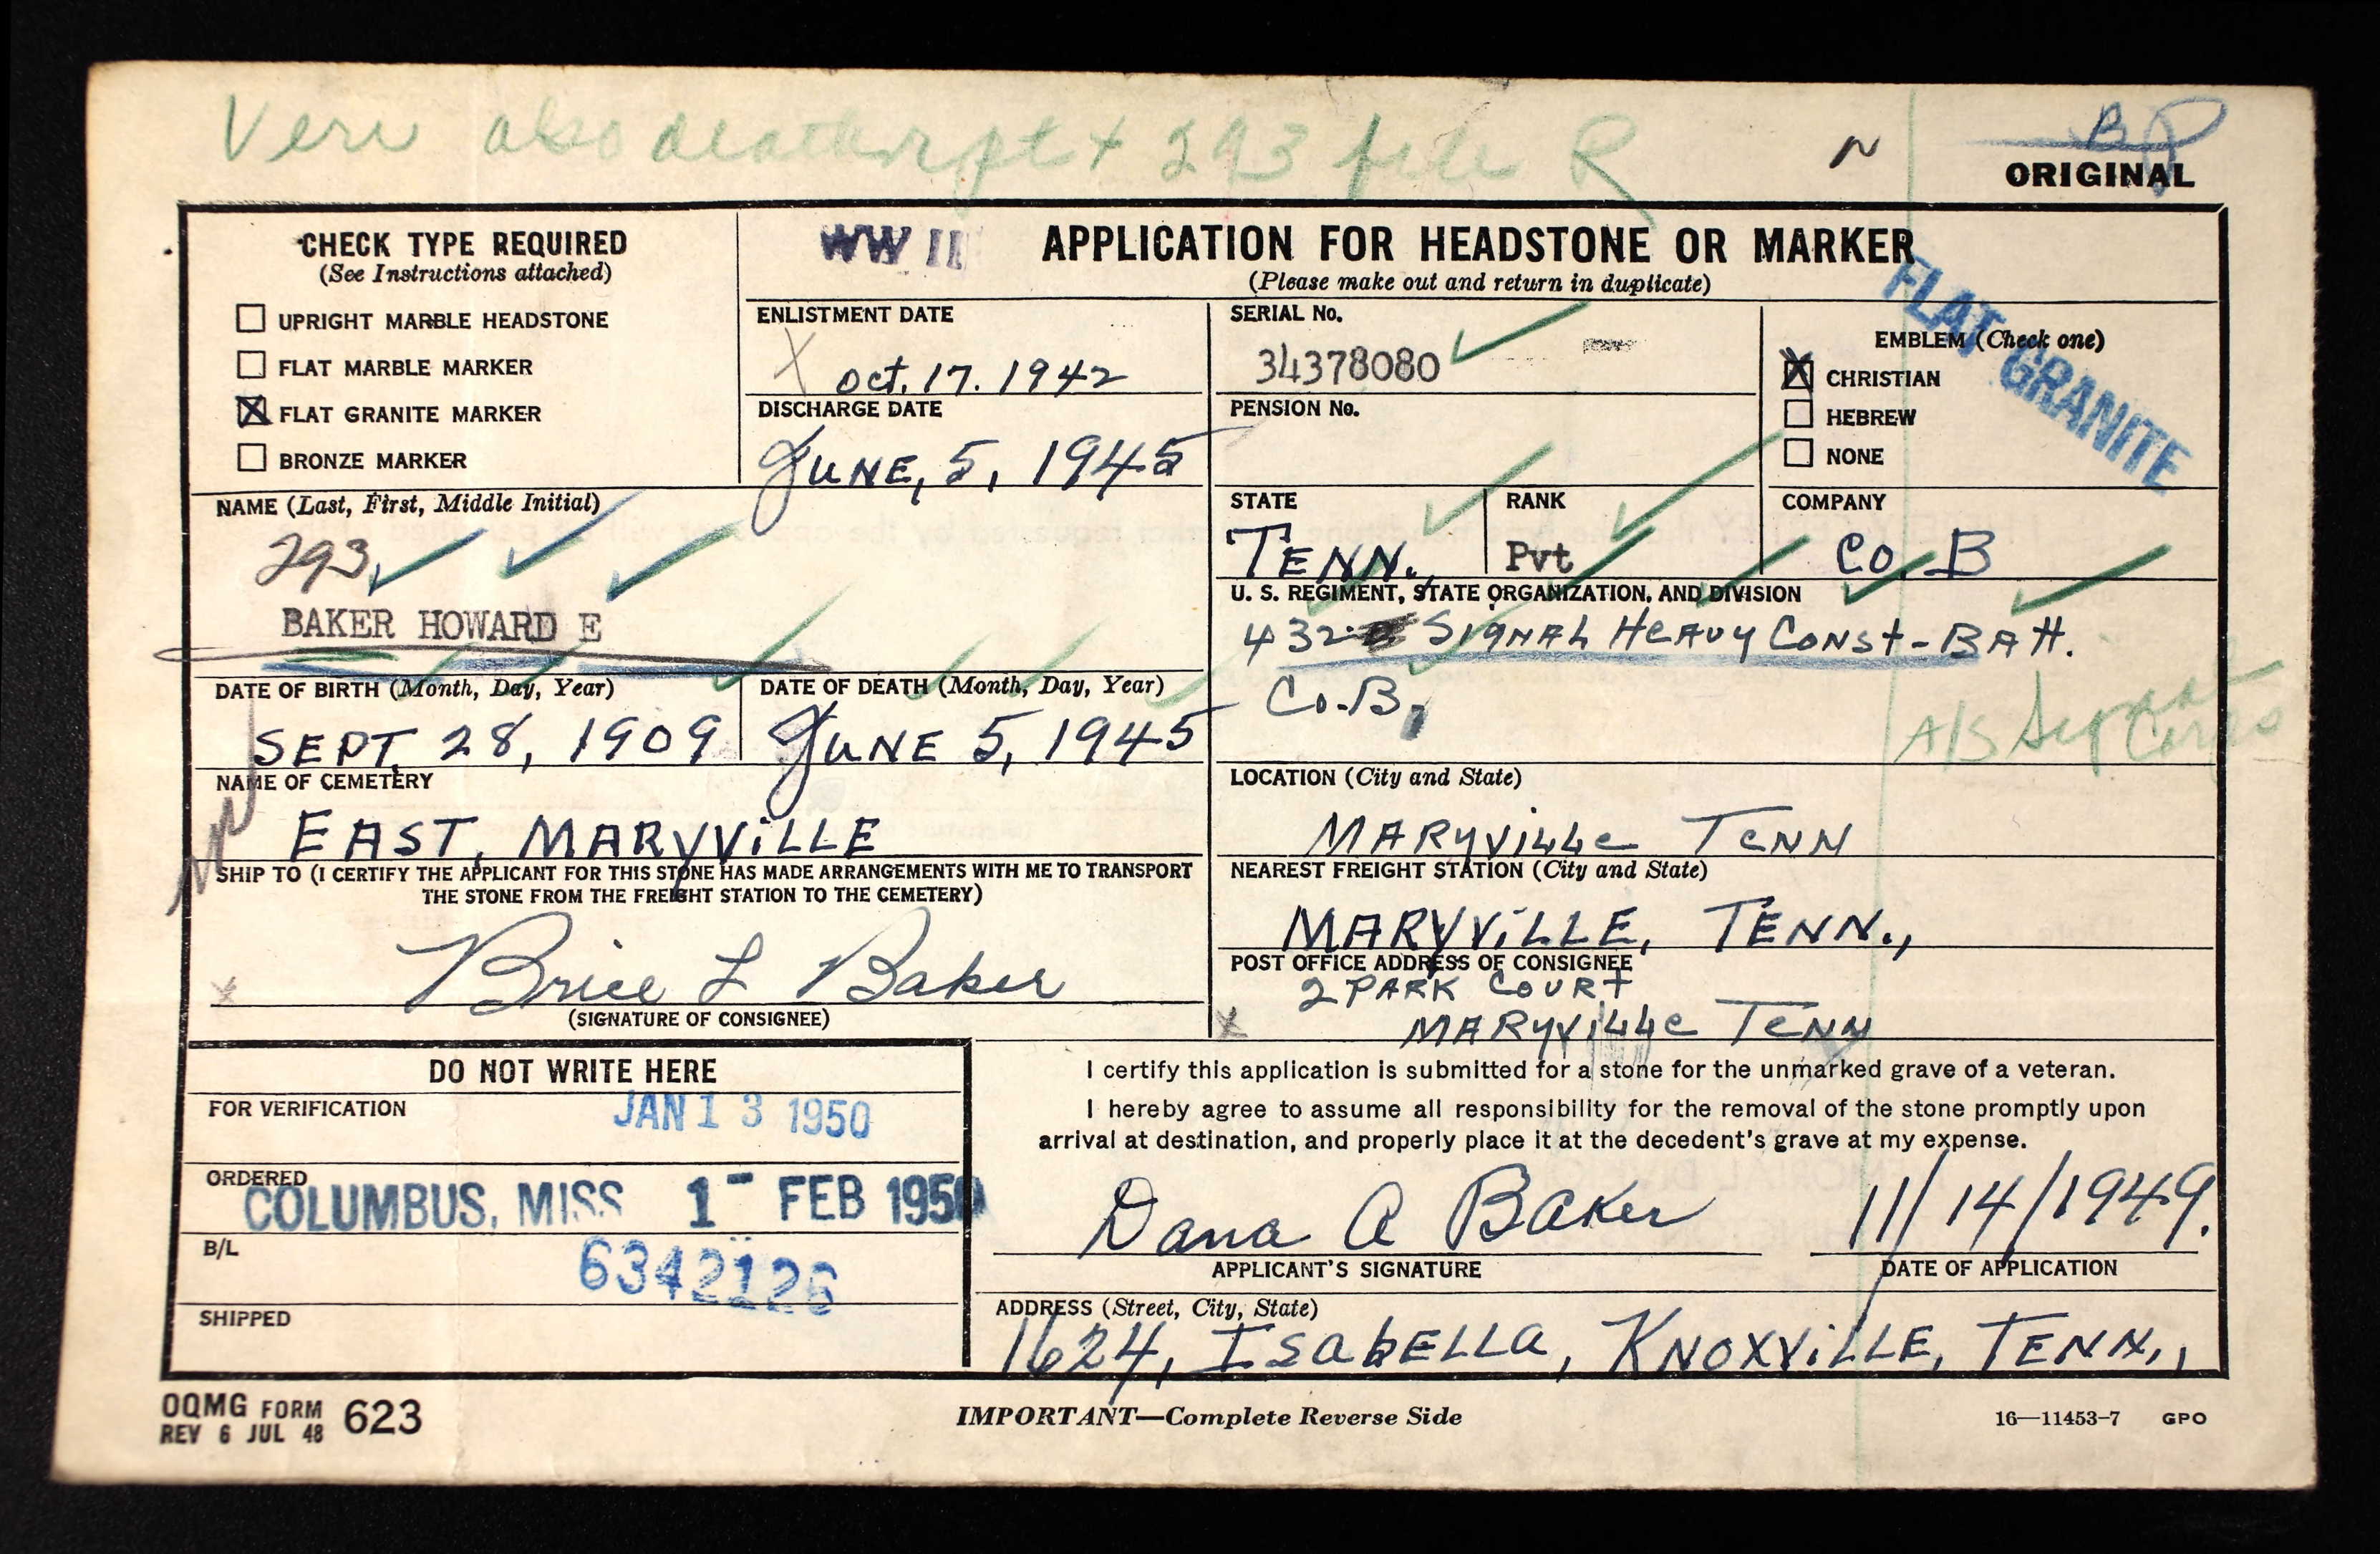 Veri also deathrpt + 293 file R
N
B
ORIGINAL
CHECK TYPE REQUIRED
(See Instructions attached)
UPRIGHT MARBLE HEADSTONE
FLAT MARBLE MARKER
X FLAT GRANITE MARKER
BRONZE MARKER
WW II
APPLICATION FOR HEADSTONE OR MARKER
(Please make out and return in duplicate)
FLAT GRANITE
ENLISTMENT DATE
X Oct. 17. 1942
DISCHARGE DATE
JUNE, 5, 1945
SERIAL No.
34378080
PENSION No.
EMBLEM (Check one)
X CHRISTIAN
HEBREW
NONE
NAME (Last, First, Middle Initial)
293
BAKER HOWARD E
STATE
TENN.
RANK
Pvt
COMPANY
CO. B
U. S. REGIMENT, STATE ORGANIZATION, AND DIVISION
432 SIGNAL HEAVY CONST-BATT.
Co. B,
A/S Signal Corps
DATE OF BIRTH (Month, Day, Year)
SEPT. 28, 1909
DATE OF DEATH (Month, Day, Year)
JUNE 5, 1945
NAME OF CEMETERY
EAST, MARYViLLE
LOCATION (City and State)
MARYVILLE TENN
SHIP TO (I CERTIFY THE APPLICANT FOR THIS STONE HAS MADE ARRANGEMENTS WITH ME TO TRANSPORT
THE STONE FROM THE FREIGHT STATION TO THE CEMETERY)
Brice L Baker
(SIGNATURE OF CONSIGNEE)
NEAREST FREIGHT STATION (City and State)
MARYViLLE, TENN.,
POST OFFICE ADDRESS OF CONSIGNEE
2 PARK COURT
MARYVILLE TENN
DO NOT WRITE HERE
FOR VERIFICATION
JAN 13 1950
ORDERED
COLUMBUS, MISS 1 - FEB 1950
B/L
6342126
SHIPPED
I certify this application is submitted for a stone for the unmarked grave of a veteran.
I hereby agree to assume all responsibility for the removal of the stone promptly upon
arrival at destination, and properly place it at the decedent's grave at my expense.
Dana A Baker
11/14/1949.
APPLICANT'S SIGNATURE
DATE OF APPLICATION
ADDRESS (Street, City, State)
1624, ISabELLa, KNOXViLLE, TENN.,
OQMG FORM 623
REV 6 JUL 48
IMPORTANT—Complete Reverse Side
16—11453-7 GPO